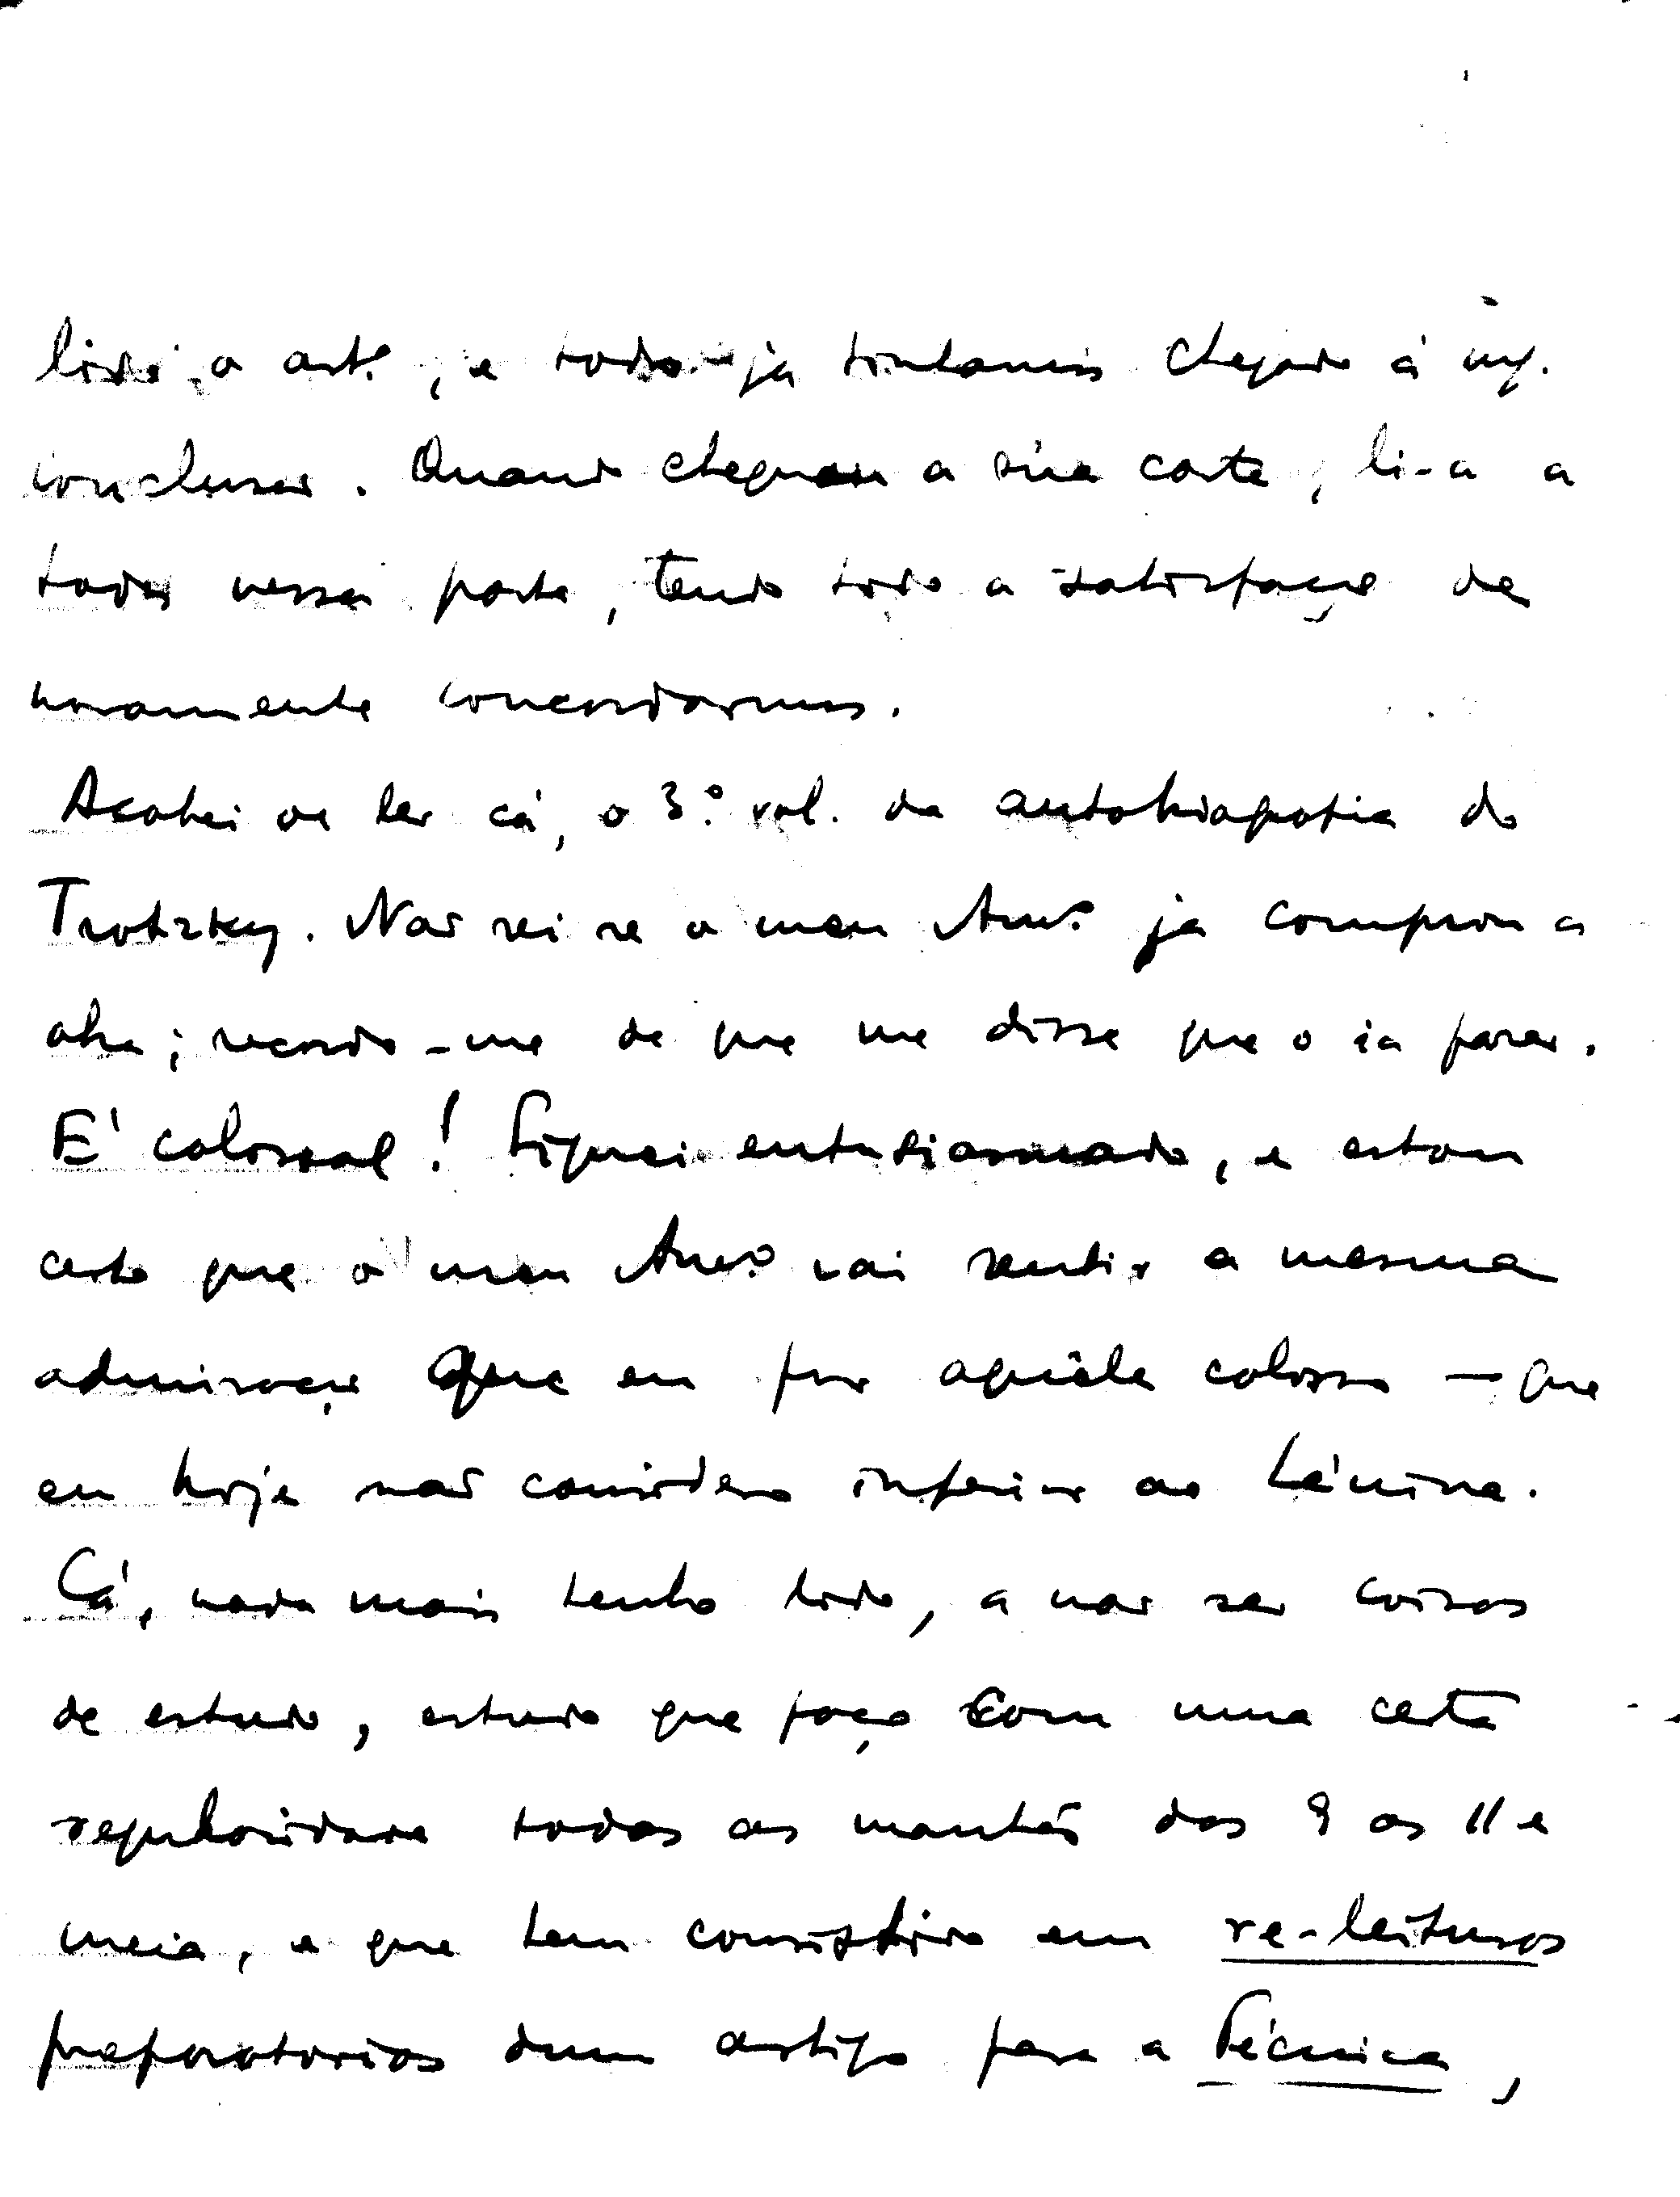 lido o art.º, e todos já tinhamos chegado á mς.
conclusão. Quando chegou a sua carta, li-a a
todos nessa parte, tendo tido a satisfação de
novamente concordarmos.
Acabei de ler cá, o 3.º vol. da autobiografia do
Trotzky. Não sei se o meu Am.º já comprou a
obra; recordo-me de que me disse que o ia fazer.
E' colossal! Fiquei entusiasmado, e estou
certo que o meu Am.º vai sentir a mesma
admiração que eu por aquêle colosso — que
eu hoje não considero inferior ao Lénine.
Cá, nada mais tenho lido, a não ser coisas
de estudo, estudo que faço com uma certa
regularidade todas as manhãs das 9 as 11 e
meia, e que tem consistido em re-leituras
preparatorias dum artigo para a Técnica,